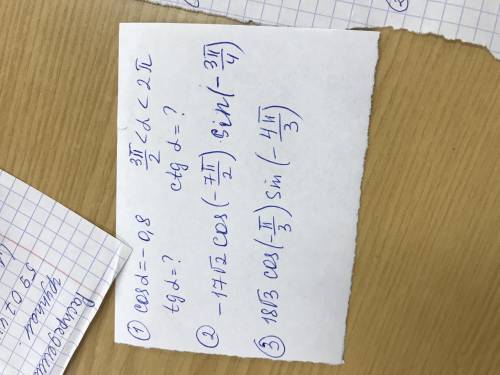 ① cos α = -0,8    3π/2 < α < 2π
tg α = ?    ctg α = ?
② -17√2 cos(-7π/2) · sin(-3π/4)
③ 18√3 cos(-π/3) sin(-4π/3)